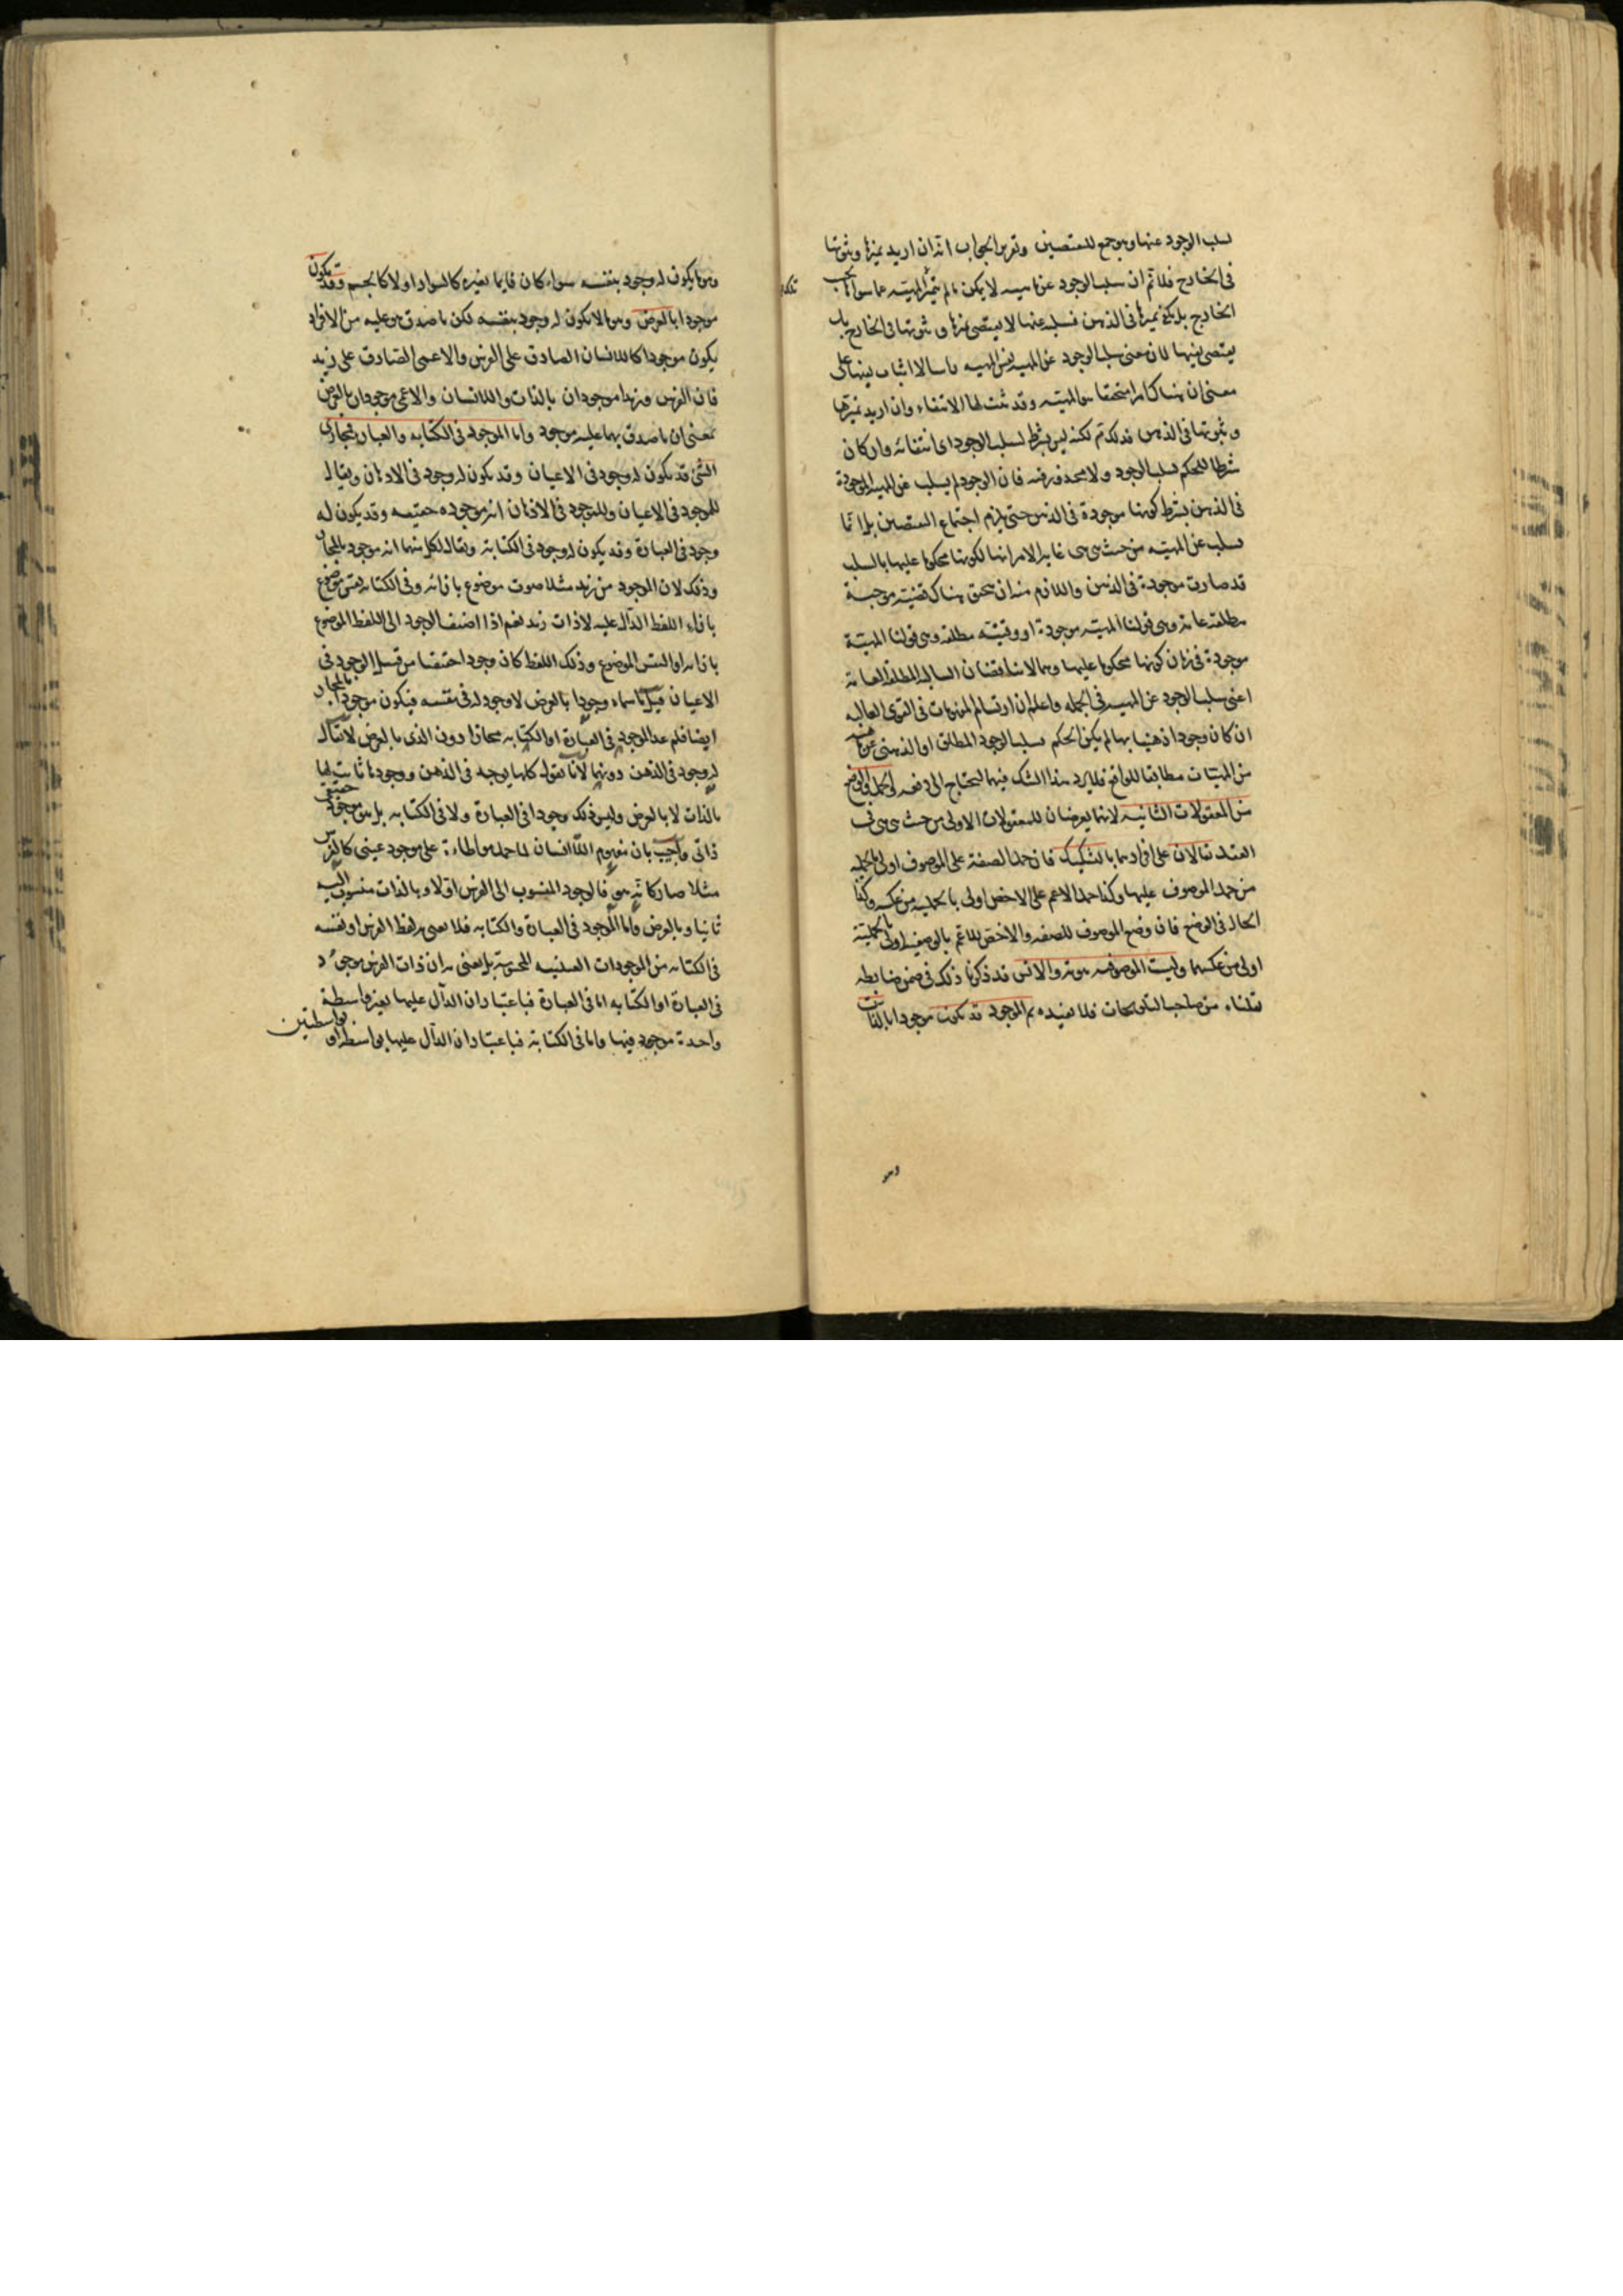 لسلب الوجود عنها وهو جمع للنقيضين وتقرير الجواب انه ان اريد تميزها وثبوتها
فى الخارج فلا تم ان سلب الوجود عن ماهيه لا يمكن ما لم يتميز المهيه عما سواها بحسب
الخارج بل يكفى تميزها فى الذهن فسلبه عنها لا يقتضى تميزها و ثبوتها فى الخارج بل
يقتضى نفيها لان معنى سلب الوجود عن المهيه نفى المهيه باسرها لا اثبات نفيها على
معنى ان هناك امرا متحققا هو المهيه وقد ثبت لها الانتفاء وان اريد تميزها
و ثبوتها فى الذهن فذلك تم لكنه ليس بشرط لسلب الوجود اى انتفائه وان كان
شرطا للحكم بسلب الوجود ولا محذور فيه فان الوجود لم يسلب عن المهيه الموجودة
فى الذهن بشرط كونها موجودة فى الذهن حتى يلزم اجتماع النقيضين بل انما
سلب عن المهيه من حيث هى هى غاية الامر انها لكونها محكوما عليها بالسلب
قد صارت موجودة فى الذهن واللازم منه ان يتحقق هناك قضية موجبة
مطلقه عامة وهى قولنا المهيه موجودة او وقتيه مطلقه وهى قولنا المهية
موجودة فى زمان كونها محكوما عليها وهما لا يناقضان السالبه المطلقة العامه
اعنى سلب الوجود عن المهيه فى الجمله واعلم ان ارتسام المفهومات فى القوى العاليه
ان كان وجودا ذهنيا بها لم يكن الحكم بسلب الوجود المطلق او الذهنى عن مهيه
من المهيات مطابقا للواقع فلا يرد هذا الشك فيهما ليحتاج الى دفعه الحمل والوضع
من المعقولات الثانيه لانهما يعرضان للمعقولات الاولى من حيث هى هى فى
العقل يقالان على افرادهما بالتشكيك فان حمل الصفة على الموصوف اولى بالحمليه
من حمل الموصوف عليها وكذا حمل الاعم على الاخص اولى بالحمليه من عكسه وكذا
الحال فى الوضع فان وضع الموصوف للصفه والاخص للاعم بالوضعيه اولى بالحملية
اولى من عكسهما وليست الموصوفيه ثبوتيه والا تس قد ذكرنا ذلك فى ضمن ضابطه
نقلناه من صاحب التلويحات فلا نعيده ثم الموجود قد يكون موجودا بالذات
وهو
وهو ما يكون له وجود بنفسه سواء كان قايما بغيره كالسواد او لا كالجسم وقد يكون
موجودا بالعرض وهو ما لا يكون له وجود بنفسه لكن ما صدق هو عليه من الافراد
يكون موجودا كاللاانسان الصادق على الفرس والاعمى الصادق على زيد
فان الفرس وزيدا موجودان بالذات واللاانسان والاعمى موجودان بالعرض
بمعنى ان ما صدق بهما عليه موجود واما الموجود فى الكتابه والعبارة فمجازى
الشئ قد يكون له وجود فى الاعيان وقد يكون له وجود فى الاذهان ويقال
للموجود فى الاعيان وللموجود فى الاذهان انه موجود حقيقه وقد يكون له
وجود فى العبارة وقد يكون له وجود فى الكتابة ويقال لكل منهما انه موجود بالمجاز
وذلك لان الموجود من زيد مثلا صوت موضوع بازائه وفى الكتابه نقش موضوع
بازاء اللفظ الدال عليه لا ذات زيد نعم اذا اضيف الوجود الى اللفظ الموضوع
بازائه او النقش الموضوع وذلك اللفظ كان وجودا حقيقيا من قبيل الوجود فى
الاعيان قيل ما سماه وجودا بالعرض لا وجود له فى نفسه فيكون موجودا بالمجاز
ايضا فلم عد الموجود فى العبارة او الكتابه مجازا دون الذى بالعرض لا يقال
له وجود فى الذهن دونهما لانا نقول كلها يوجد فى الذهن ووجودها ثابت لها
بالذات لا بالعرض وليس ذلك وجودا فى العبارة ولا فى الكتابه بل هو موجود حقيقى
ذاتى واجيب بان مفهوم اللاانسان لما حمل مواطاءة على موجود عينى كالفرس
مثلا صار كانه هو فالوجود المنسوب الى الفرس اولا وبالذات منسوب اليه
ثانيا وبالعرض واما الموجود فى العبارة والكتابه فلا يعنى به لفظ الفرس او نقشه
فى الكتابه من الموجودات العينيه المحسوسة بل يعنى به ان ذات الفرس موجود
فى العبارة او الكتابه اما فى العبارة فباعتبار ان الدال عليها بغير واسطة
واحدة موجود فيها واما فى الكتابة فباعتبار ان الدال عليها بواسطه او بواسطتين